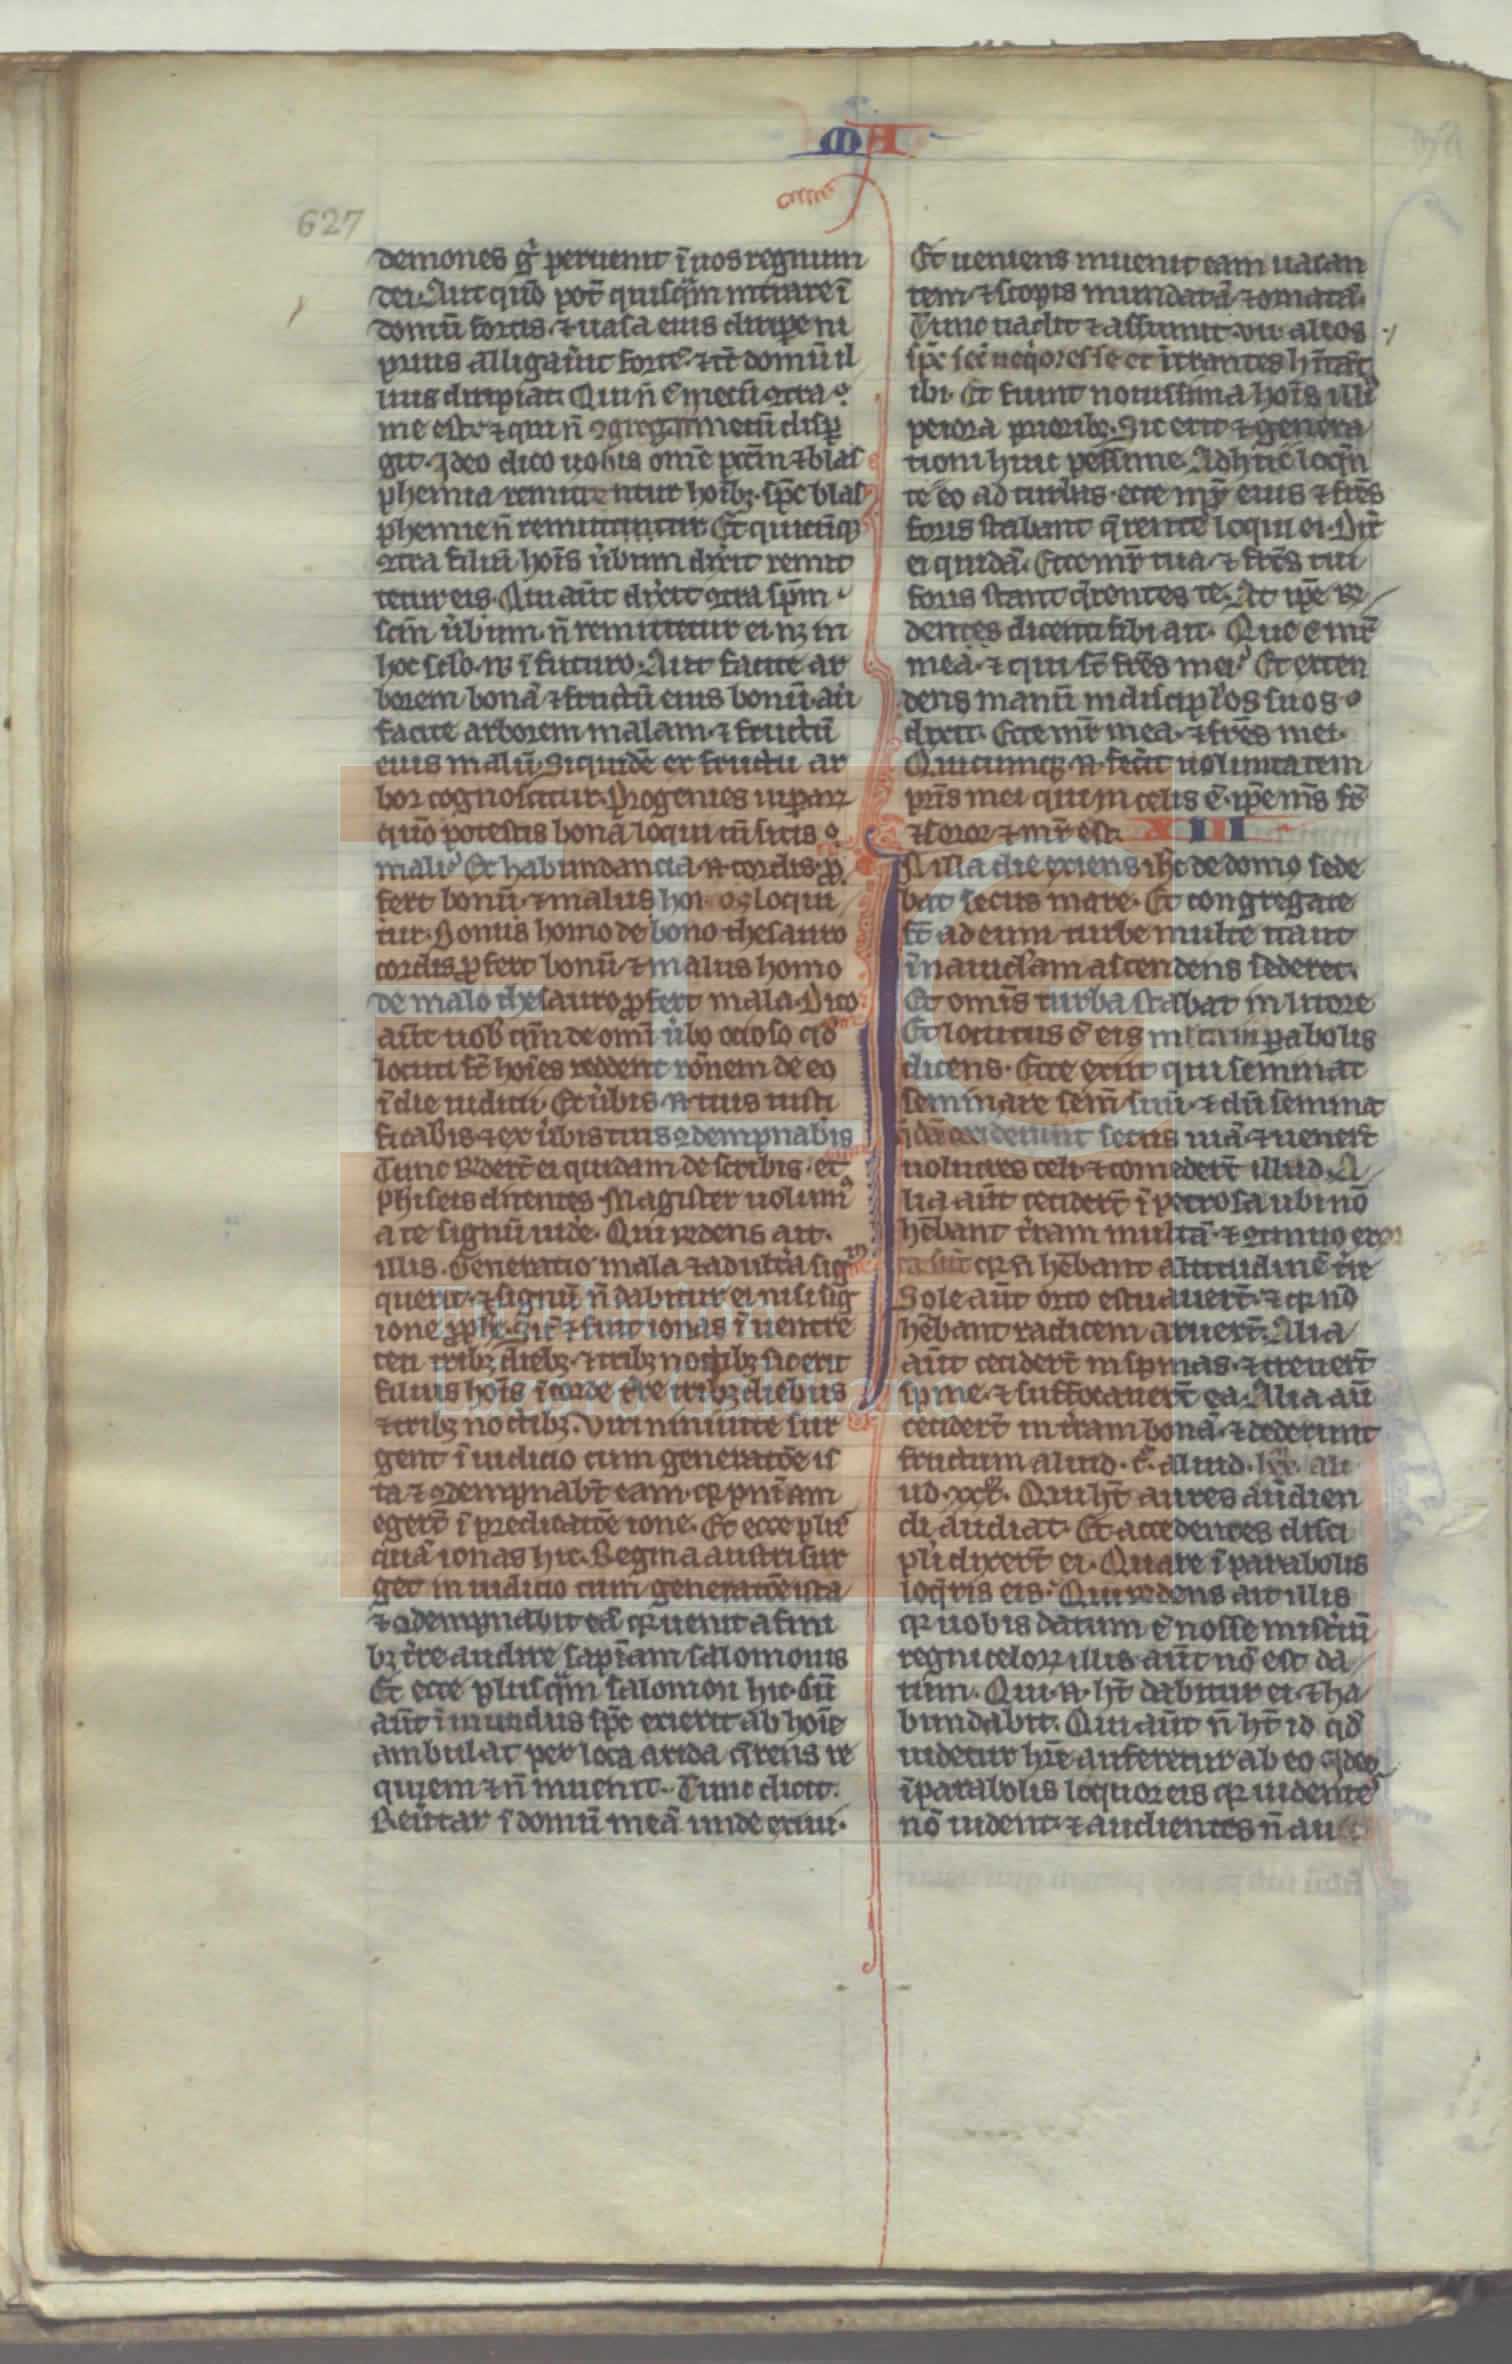 MA
627
demones gͥ peruenit ī uos regnum
dei. Aut quō pot̄ quisqͣm intrare ī
domū fortis ⁊ uasa eius diripe ni
prius alligau̾it forte̾ ⁊ tc̄ domū il
lius diripiat. Qui n̄ ē mecū ꝯtra
me est. ⁊ qui n̄ ꝯgregat mecū disp̄
git. Ideo dico uobis om̄e pcc̄m ⁊ blas
phemia remittentur hoībꝫ. sp̄c blas
phemie n̄ remittuntur. Et quicūqꝫ
ꝯtra filiū hoīs u̾bum dix̾it remit
tetur eis. Qui aūt dix̾it ꝯtra sp̄m
scm̄ u̾bum. n̄ remittetur ei nꝫ in
hoc sclo. nꝫ ī futuro. Aut facite ar
borem bonā ⁊ fructū eius bonū. aū
facite arborem malam. ⁊ fructū
eius malū. Siquidē ex fructu ar
bor cognoscitur. Progenies uiꝑarꝝ
quō potestis bona loqui cū sitis
mali. Et habundancia n̄ cordis ꝓ
fert bonū. ⁊ malus hoi os loqui
tur. Bonus homo de bono thesauro
cordis ꝓfert bonū ⁊ malus homo
de malo thesauro ꝓfert mala. Dico
aūt uob̾ qm̄ de omī u̾bo ocioso qd̾
locuti fc̄ hoīes reddent rōnem de eo
ī die iudicii. Et u̾bis n̄ tuis iusti
ficabis ⁊ ex u̾bis tuis ꝯdempnabis
Tunc r̄dert̄ ei quidam de scribis. et
phiseis dicentes. Magister uolumꝰ
a te signū uide̾. Qui r̄dens ait.
illis. Generatio mala ⁊ adult̾a sig
querit. ⁊ signū n̄ dabitur ei nisi sig
ione ꝓphe. Sic̄ ⁊ fuit ionas ī uentre
ceti tribꝫ diebꝫ ⁊ tribꝫ noctibꝫ sic erit
filius hoīs ī corde t̾re tribꝫ diebus
⁊ tribꝫ noctibꝫ. Viri niniuite sur
gent ī iudicio cum generatōe is
ta ⁊ ꝯdempnabt̄ eam. qꝛ pnīam
egert̄ ī predicatōe ione. Et ecce plus̾
quā ionas hic. Regina austri sur
get in iudicio cum generatōe ista
⁊ ꝯdempnabit eā qꝛ uenit a fini
bꝫ t̾re audire sapīam salomonis
Et ecce plusqͣm salomon hic. Cū
aūt īmundus sp̄c exierit ab hoīe
ambulat per loca arida qͥrens re
quiem ⁊ n̄ inuenit. Tunc dicit.
Reu̾tar ī domū meā unde exiui.
Et ueniens inuenit eam uacan
tem ⁊ scopis mundatā ⁊ ornatā.
Tunc uadit ⁊ assumit. vii. alios
sp̄c sec̄ neqͥores se et ītrantes hīt̄āt
ibi. Et fiunt nouissima hoīs illiꝰ
peiora prioribꝫ. Sic erit ⁊ genera
tioni huic pessime. Adhuc loqn̄
te eo ad turbas. ecce mr̄ eius ⁊ fr̄es
foris stabant qͥrente loqui ei. Dix̾
ei quidā. Ecce mr̄ tua ⁊ fr̄es tui
foris stant qͥrentes te. At ip̄e re
dentes dicenti sibi ait. Que ē mr̄
mea ⁊ qui sc̄ fr̄es mei. Et exten
dens manū in discipl̾os suos
dixit. Ecce mr̄ mea. ⁊ fr̄es mei.
Quicumqꝫ n̄ fec̾it uoluntatem
pr̄is mei qui in celis ē. ip̄e ms̄ fr̄
⁊ soror ⁊ mr̄ est. XIII
In illa die exiens ihc̄ de domo sede
bat secus mare. Et congregate
sc̄ ad eum turbe multe ita ut
ī nauicl̾am ascendens sederet.
Et omīs turba stabat in litore
Et locutus ē eis multa in ꝑabolis
dicens. Ecce exiit qui seminat
seminare sem̄ suū. ⁊ dū seminat
qͥdā ceciderunt secus uiā. ⁊ uenert̄
uolucres celi ⁊ comedert̄ illud. A
lia aūt cecidert̄ ī petrosa ubi nō
hēbant t̾ram multā. ⁊ ꝯtinuo exor
ta sūt qꝛ n̄ hēbant altitudinē t̾re
Sole aūt orto estuauert̄. ⁊ qꝛ nō
hēbant radicem aruert̄. Alia
aūt cecidert̄ in spinas. ⁊ creuert̄
spine. ⁊ suffocauert̄ ea. Alia aū
cecidert̄ in t̾ram bonā. ⁊ dederunt
fructum aliud. c̾. aliud. lx̾. ali
ud. xxx̾. Qui ht̄ aures audien
di audiat. Et accedentes disci
pl̾i dixert̄ ei. Quare ī parabolis
loqͥris eis. Qui r̄dens ait illis
qꝛ uobis datum ē nosse mist̾iū
regni celorꝝ illis aūt nō est da
tum. Qui n̄ ht̄ dabitur ei ⁊ ha
bundabit. Qui aūt n̄ ht̄ id qd̾
uidetur hr̄e auferetur ab eo. Ideo
ī parabolis loquor eis qꝛ uidente̾
nō uident. ⁊ audientes n̄ au
FLG
Lázaro Galdiano